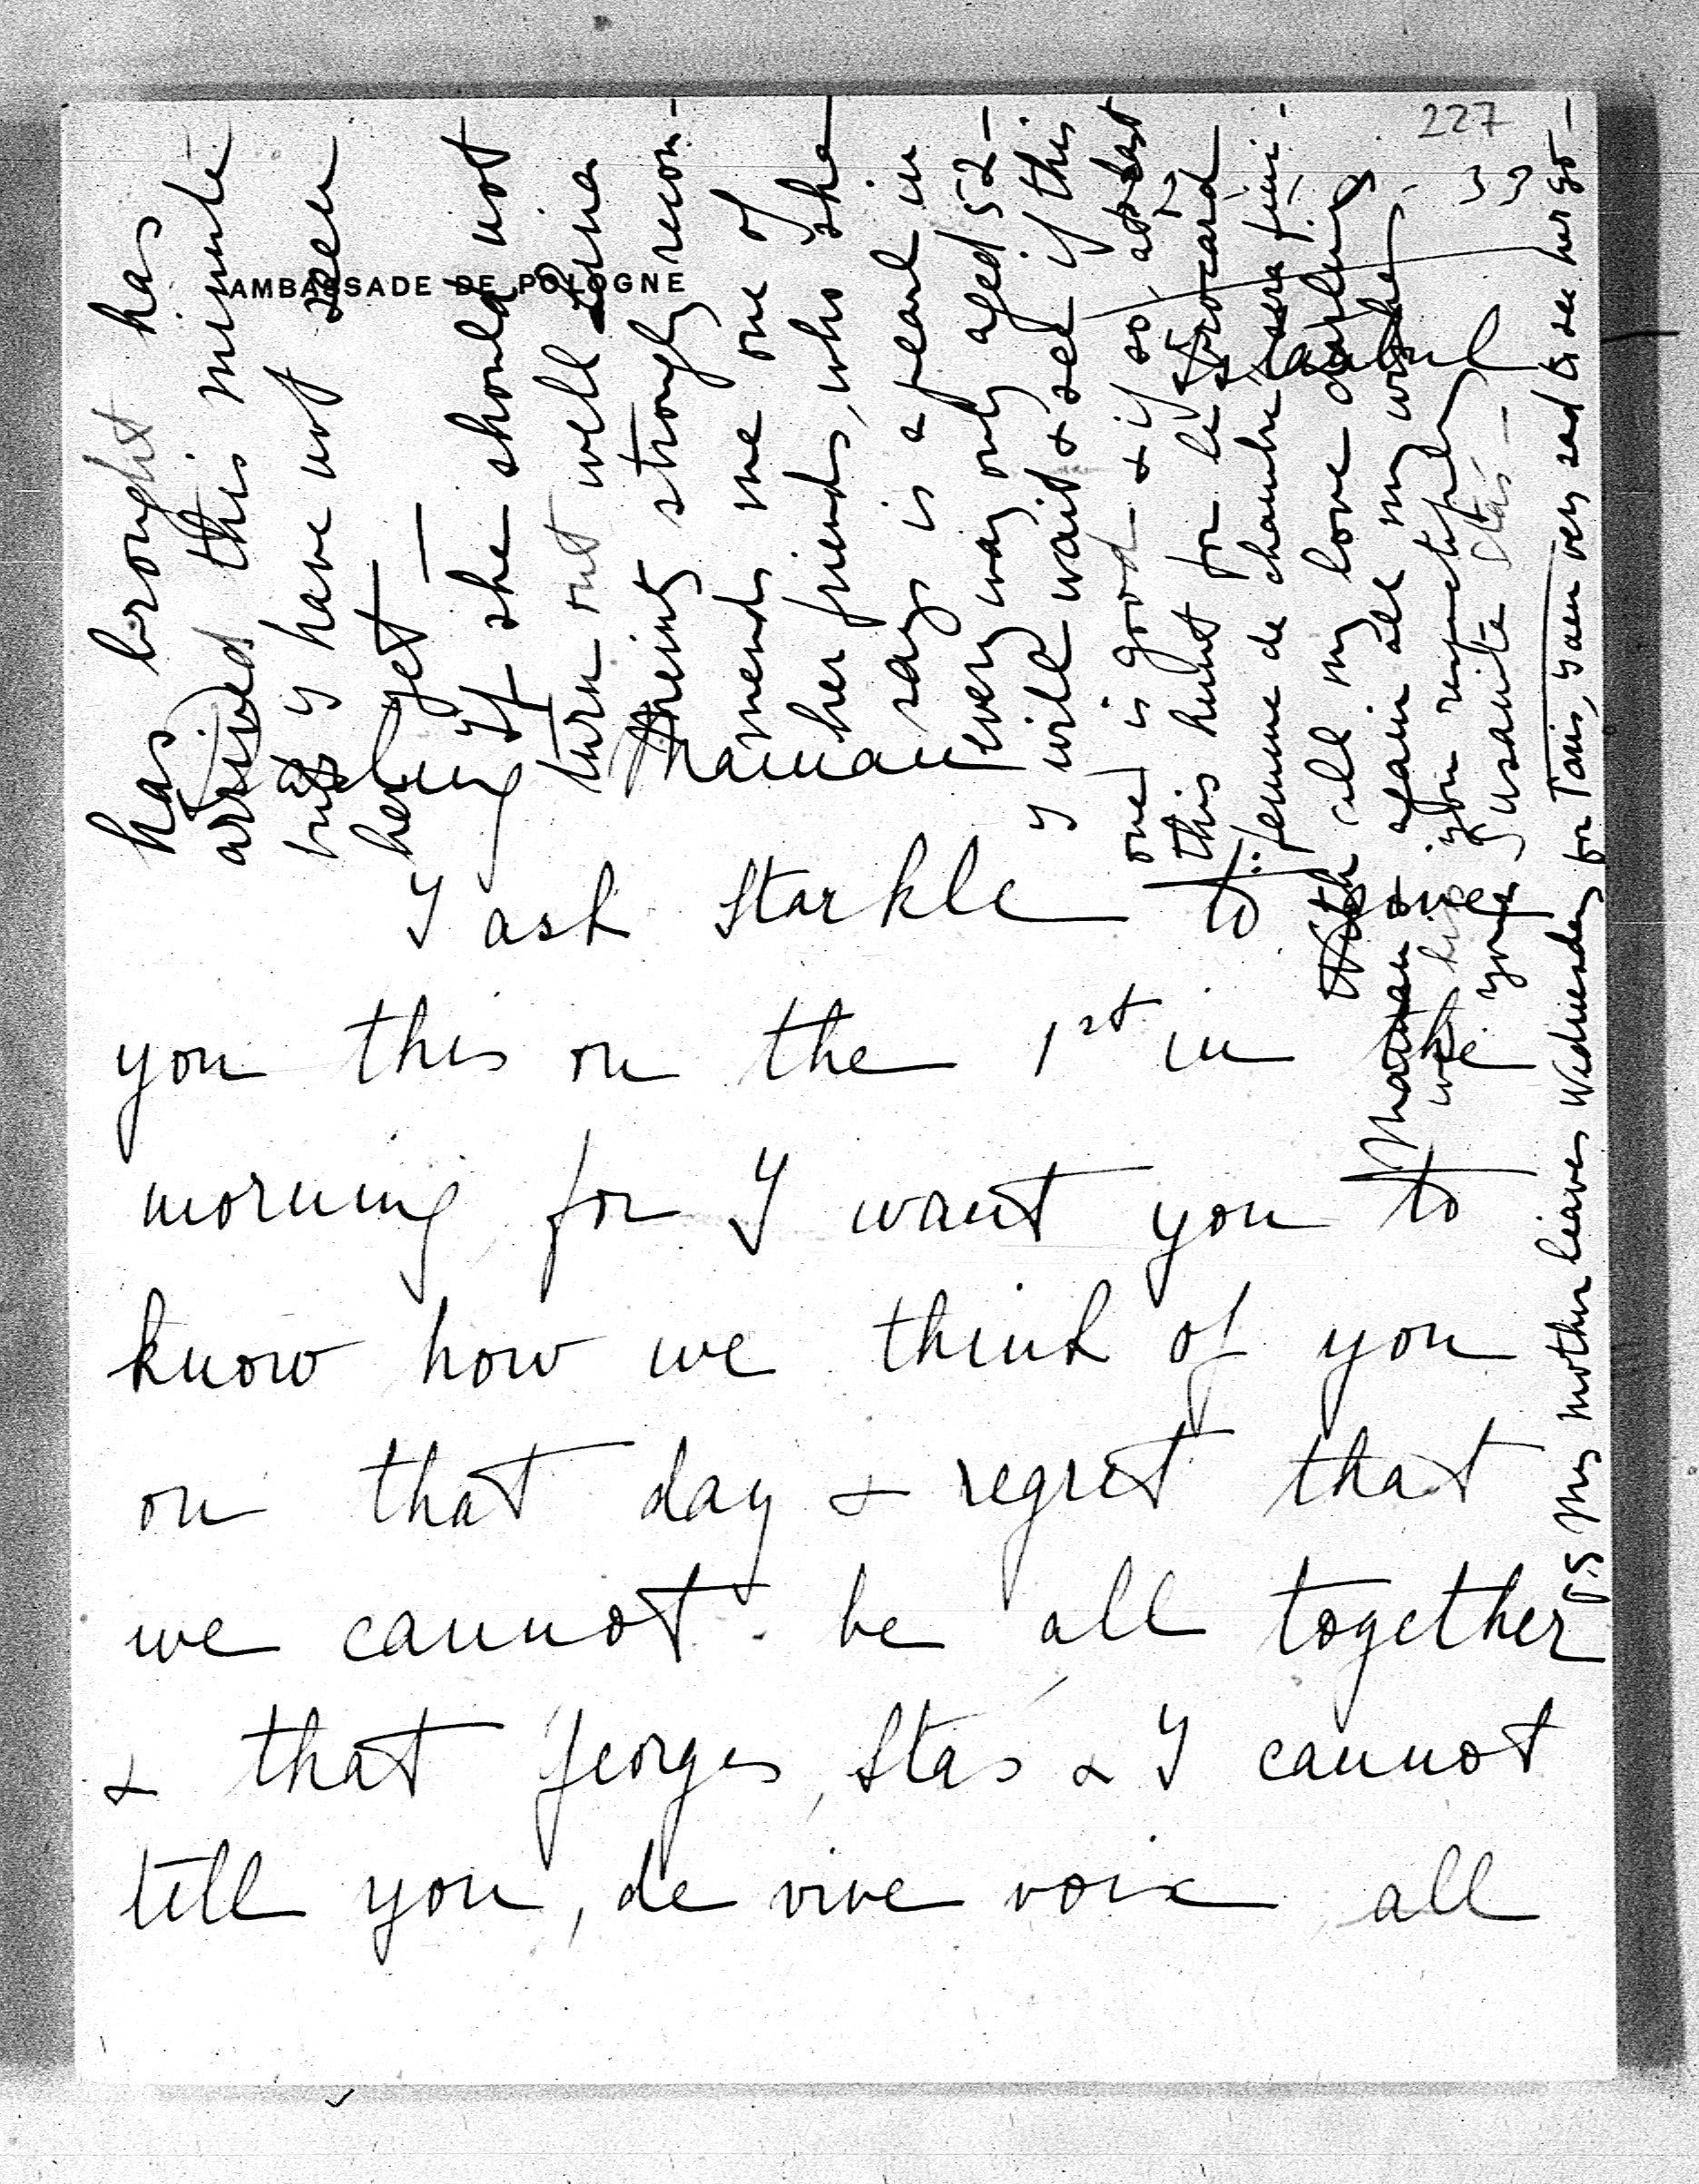 227
AMBASSADE DE POLOGNE
Istanbul
Darling Maman
I ask Starkle to give
you this on the 1st in the
morning for I want you to
know how we think of you
on that day & regret that
we cannot be all together
& that Georges, Stas & I cannot
tell you, de vive voix all
has brought has
arrived this minute
but I have not seen
her yet —
If she should not
turn out well Irma
Mering strongly recom-
mends me one of
her friends, who she
says is a pearl in
every way only aged 52 —
I will wait & see if this
one is good & if so, at last
this hunt for le
femme de chambre sera fini.
With all my love darling
Maman & again all my wishes
we kiss you respectfully
your Susanite Stas —
P.S My mother leaves Wednesday for Paris, I am very sad to see her go —